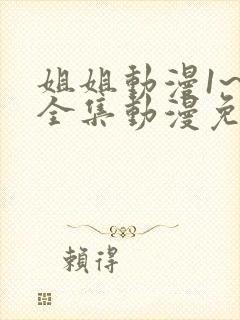 姐姐動漫1~
全集動漫免
賴得